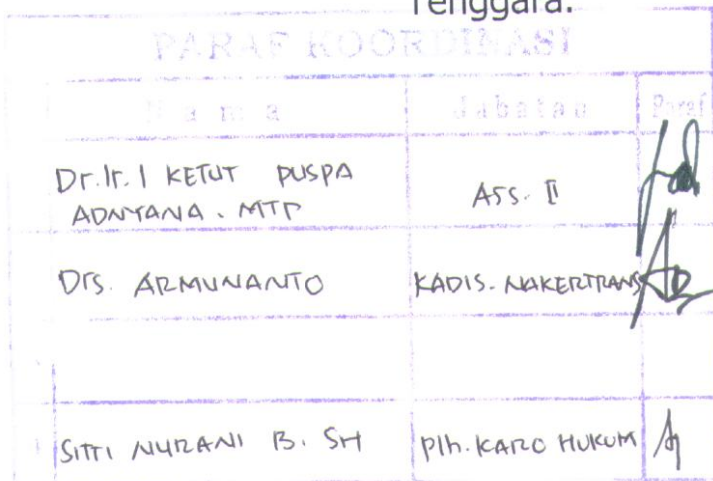 Tenggara.
PARAF KOORDINASI
Nama Jabatan Paraf
Dr. Ir. I KETUT PUSPA
ADNYANA. MTP
ASS. II
Drs. ARMUNANTO KADIS. NAKERTRANS
SITTI NURANI B. SH Plh. KARO HUKUM